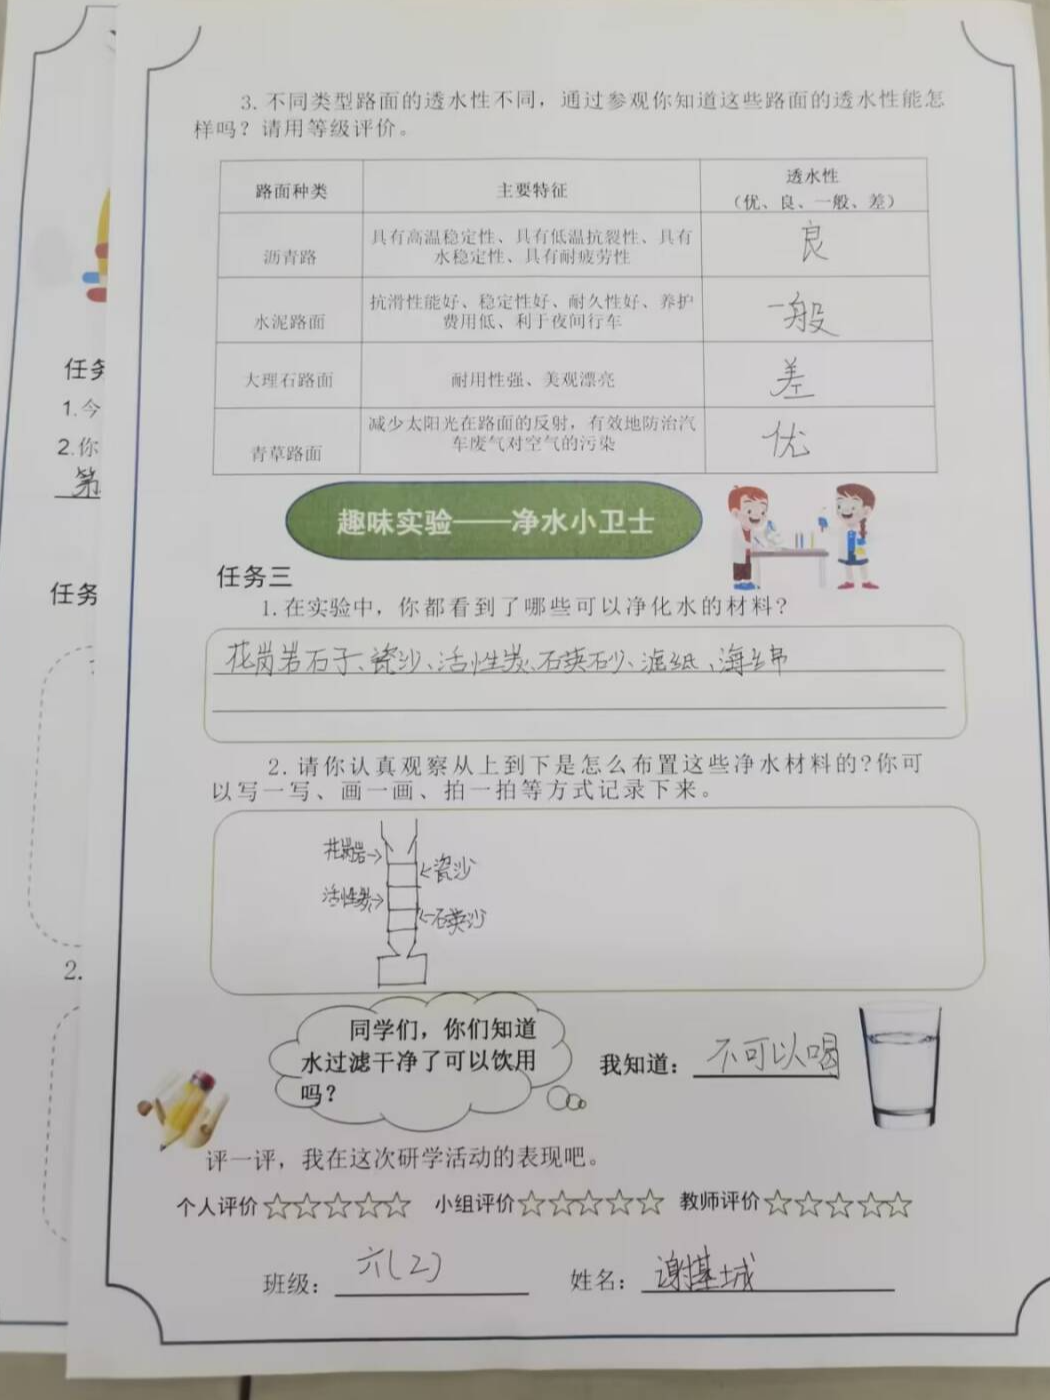 3. 不同类型路面的透水性不同，通过参观你知道这些路面的透水性能怎
样吗？请用等级评价。
路面种类 主要特征 透水性
（优、良、一般、差）
沥青路 具有高温稳定性、具有低温抗裂性、具有
水稳定性、具有耐疲劳性 良
水泥路面 抗滑性能好、稳定性好、耐久性好、养护
费用低、利于夜间行车 一般
大理石路面 耐用性强、美观漂亮 差
青草路面 减少太阳光在路面的反射，有效地防治汽
车废气对空气的污染 优
趣味实验——净水小卫士
任务三
1.在实验中，你都看到了哪些可以净化水的材料?
花岗岩石子、瓷沙、活性炭、石英砂、滤纸、海绵
2.请你认真观察从上到下是怎么布置这些净水材料的?你可
以写一写、画一画、拍一拍等方式记录下来。
花岗岩
瓷沙
活性炭
石英沙
同学们，你们知道
水过滤干净了可以饮用
吗？
我知道：不可以喝
评一评，我在这次研学活动的表现吧。
个人评价☆☆☆☆☆ 小组评价☆☆☆☆☆ 教师评价☆☆☆☆☆
班级：六(2) 姓名：谢基城
任务
1.今
2.你
第
任务
2.